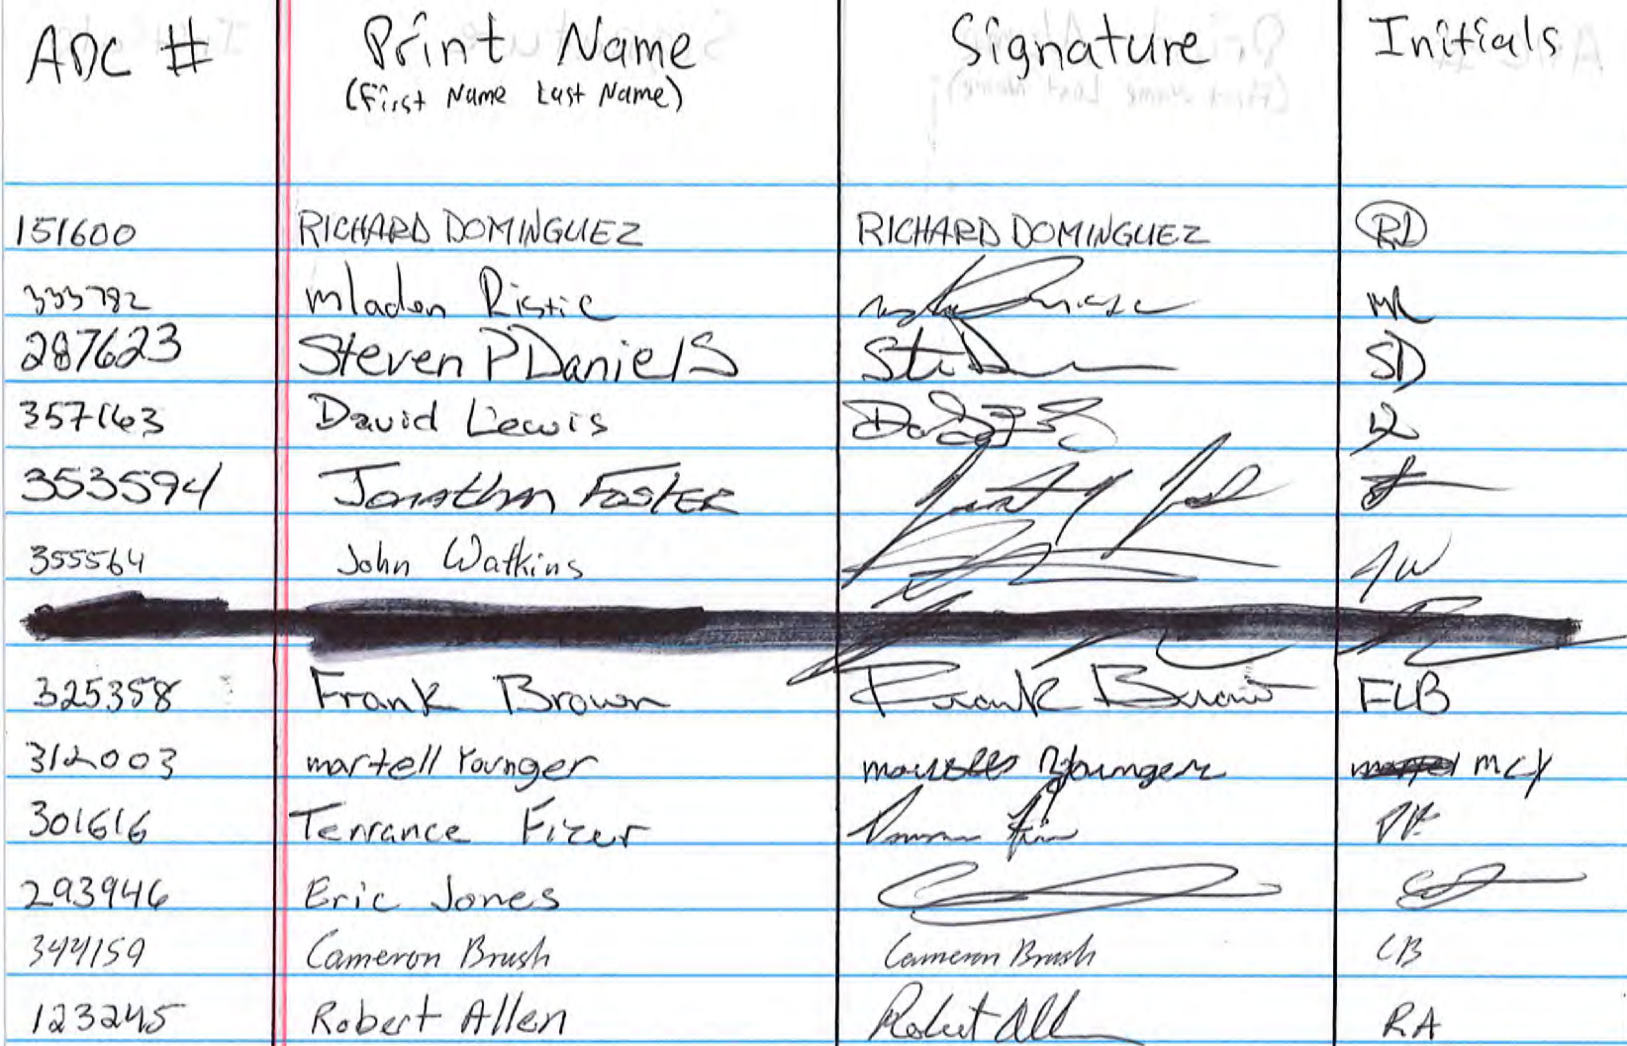 ADC # Print Name Signature Initials
(First Name Last Name)
151600 RICHARD DOMINGUEZ RICHARD DOMINGUEZ RD
333782 mladen Ristic MR
287623 Steven P Daniels SD
357163 David Lewis
353594 Jonathan Foster
355564 John Watkins JW
325358 Frank Brown Frank Brown FLB
312003 martell Younger Younger mcy
301616 Terrance Fizer
293946 Eric Jones
344159 Cameron Brush Cameron Brush CB
123245 Robert Allen Robert All RA